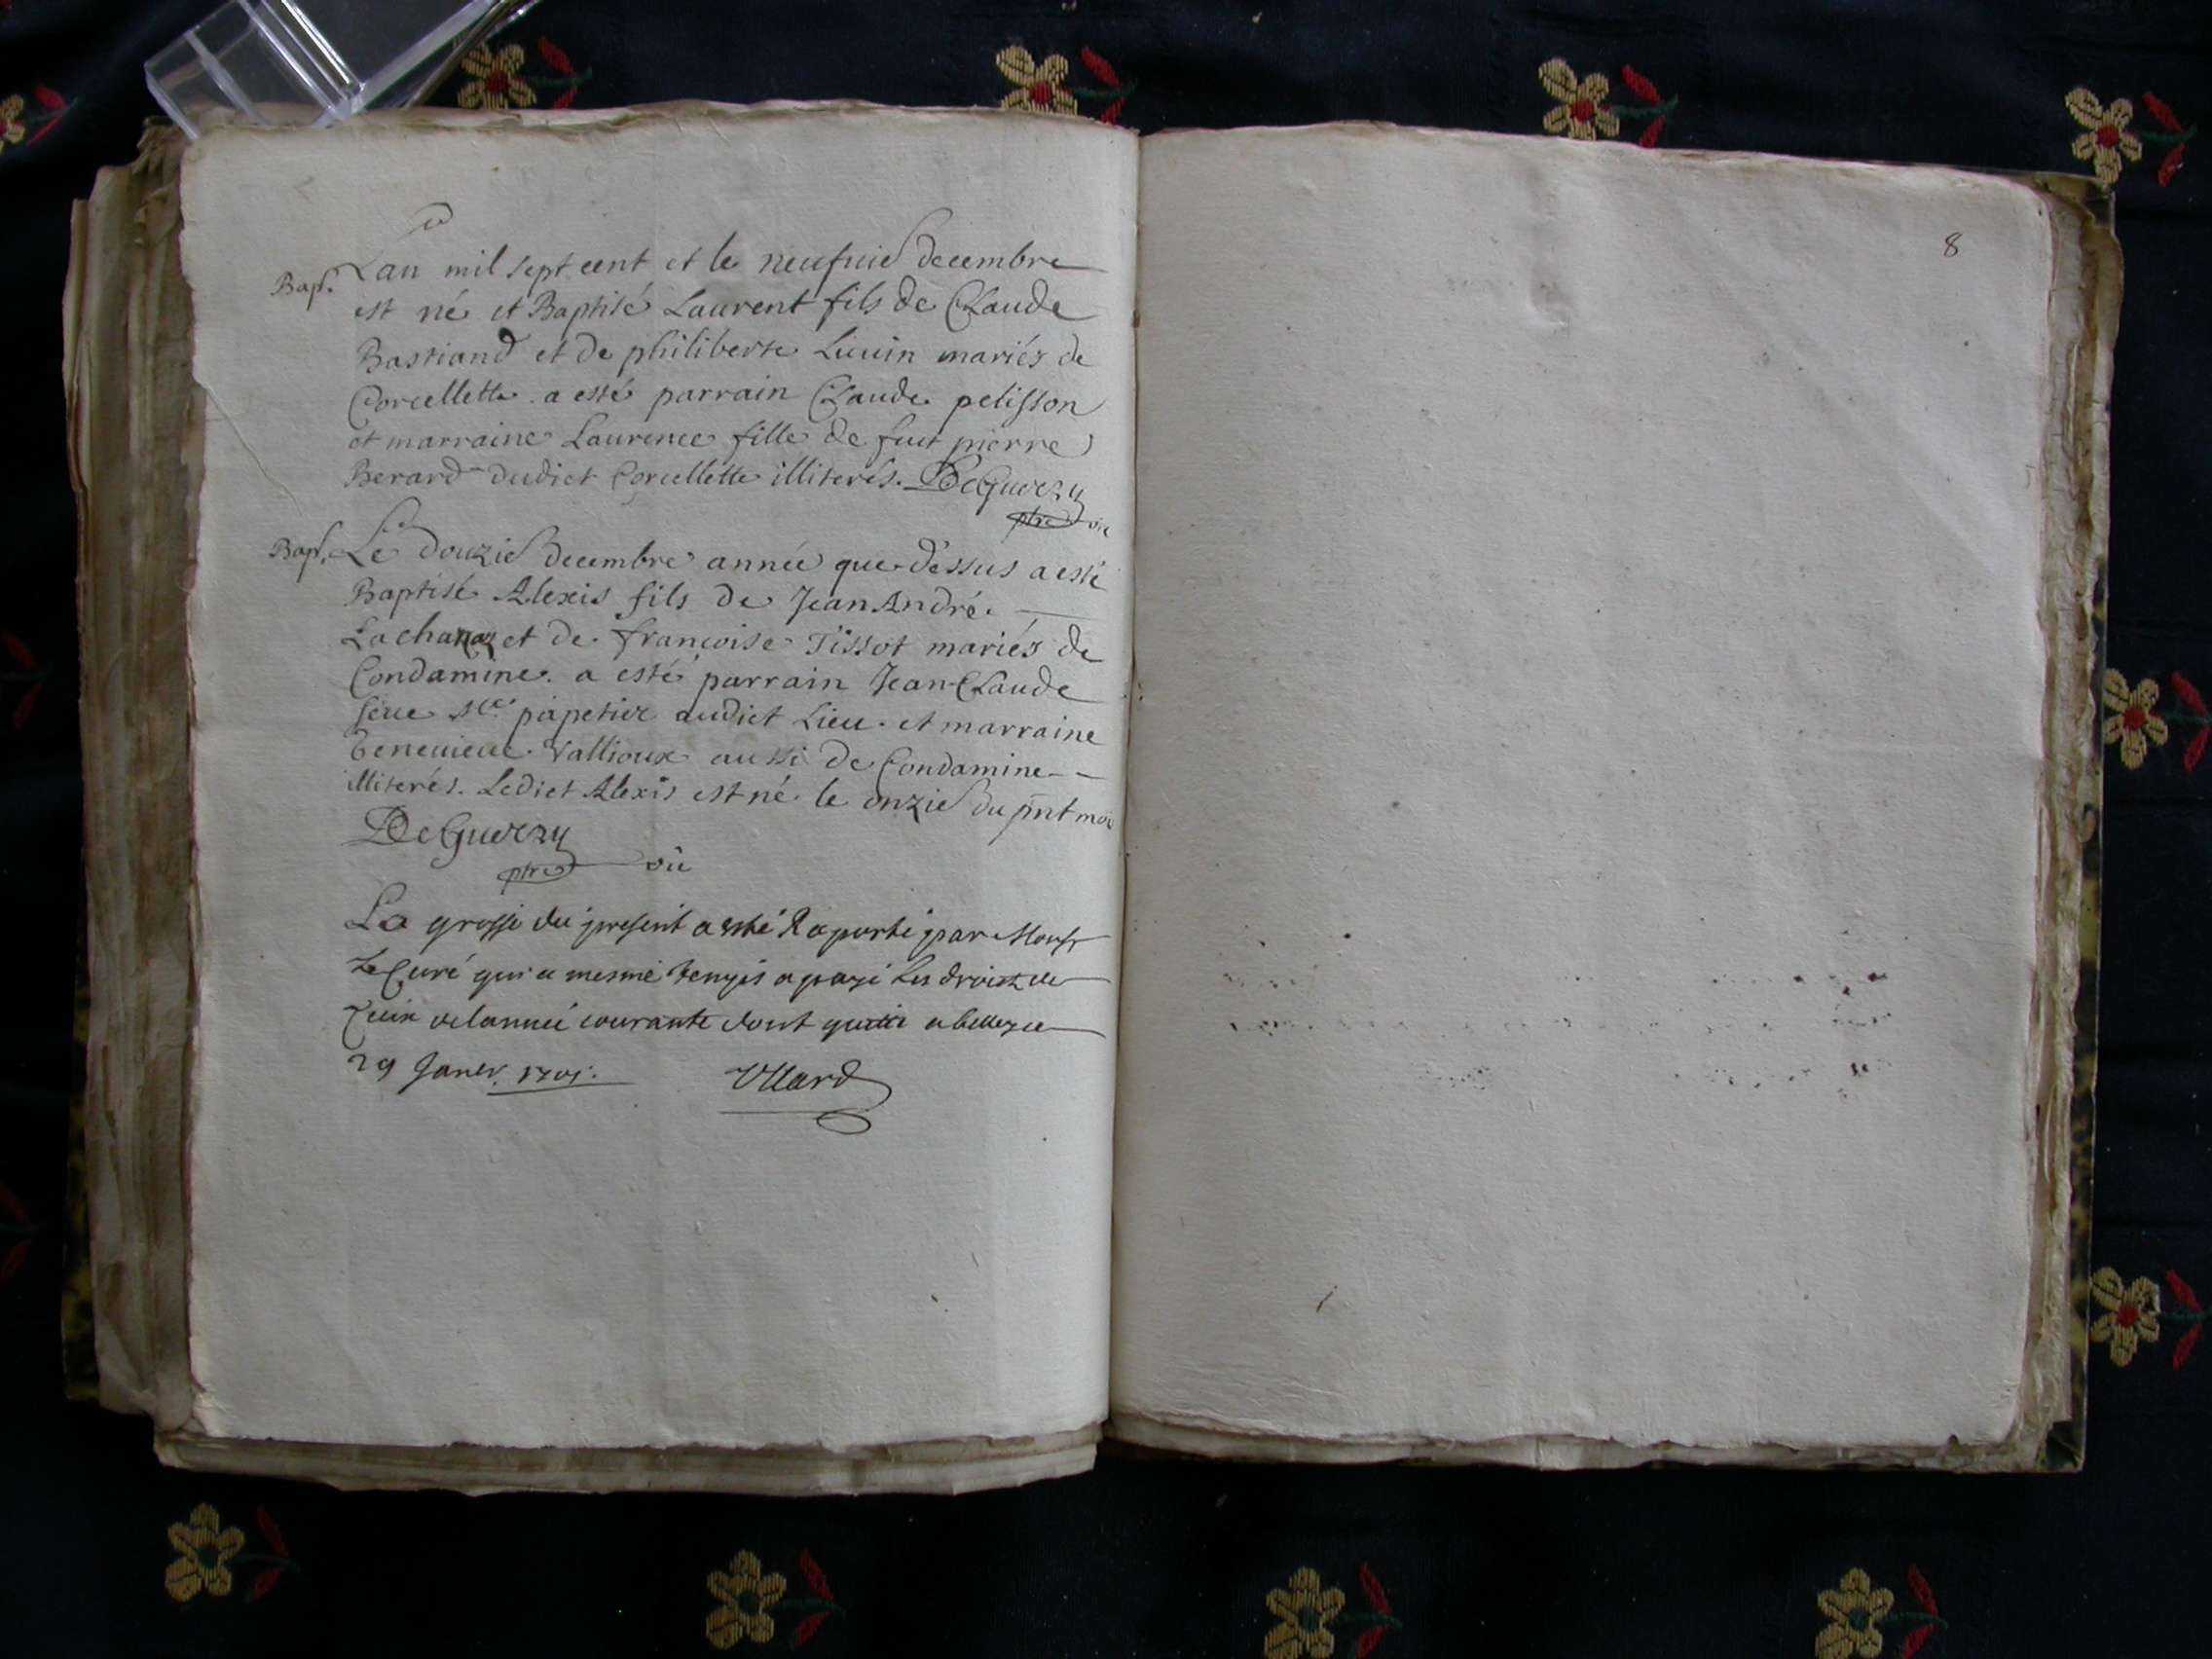 Bapt. Lan mil sept cent et le neufuie decembre
est né et Baptisé Laurent fils de Claude
Bastiand et de philiberte Liuuin mariés de
Corcellette. a esté parrain Claude pelisson
et marraine Laurence fille de fut pierre
Berard dudict Corcellette illiterés. DeGuerzy
ptre
Bapt. Le douzie decembre année que dessus a esté
Baptisé Alexis fils de Jean André
Lachanaz et de francoise Tissot mariés de
Condamine. a esté parrain Jean Claude
seue Me papetier audict Lieu. et marraine
Geneuieue Vallioux aussi de Condamine
illiterés. Ledict Alexis est né le onzie du pnt moi
DeGuerzy
ptre
La grosse du present a esté Raporté par Monsr
Le Curé qui a mesme temps a payé Les droictz de
delannée courante dont quitte a belley ce
29 Janv. 1701.
8